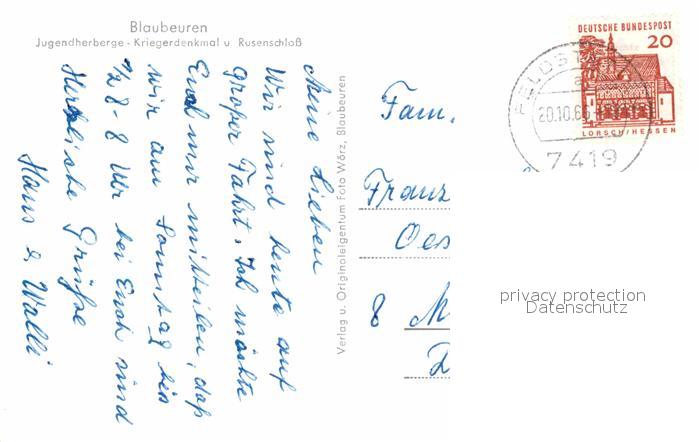 Blaubeuren
Jugendherberge - Kriegerdenkmal u. Rusenschloß
Meine Lieben
Wir sind heute auf
Großer Fahrt. Ich möchte
Euch nur mitteilen, daß
wir am Sonntag bis
1/2 8 - 8 Uhr bei Euch sind
Herzliche Grüße
Hans & Walli
Verlag u. Originaleigentum Foto Wörz, Blaubeuren
DEUTSCHE BUNDESPOST
20
LORSCH/HESSEN
20.10.66
7419
Fam.
Franz
Oes
8 M
privacy protection
Datenschutz